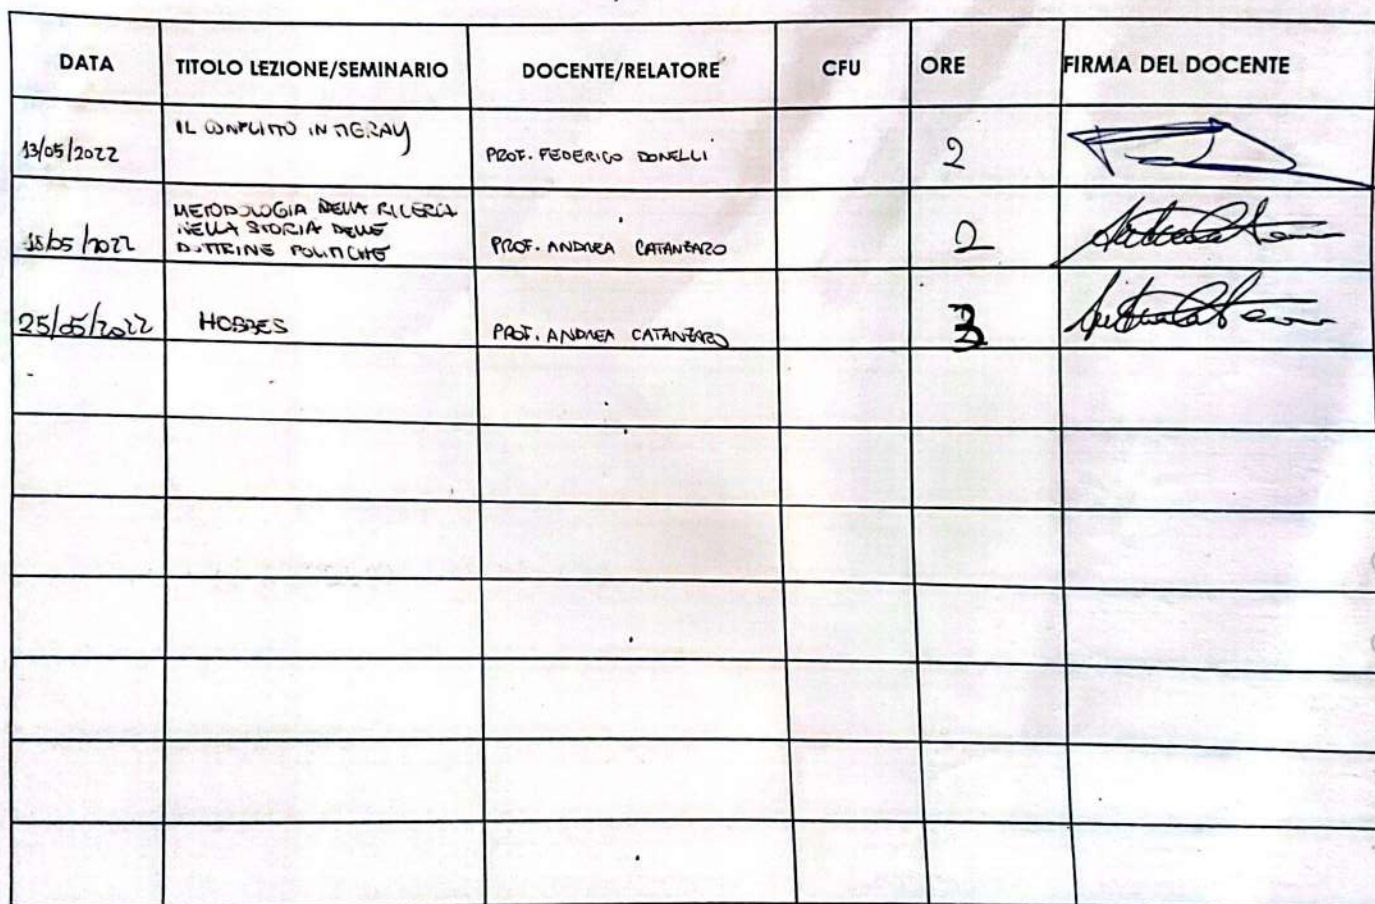 DATA TITOLO LEZIONE/SEMINARIO DOCENTE/RELATORE CFU ORE FIRMA DEL DOCENTE
13/05/2022 IL CONFLITTO IN TIGRAY PROF. FEDERICO DONELLI 2
METODOLOGIA DELLA RICERCA
NELLA STORIA DELLE
18/05/2022 DOTTRINE POLITICHE PROF. ANDREA CATANZARO 2
25/05/2022 HOBBES PROF. ANDREA CATANZARO 3